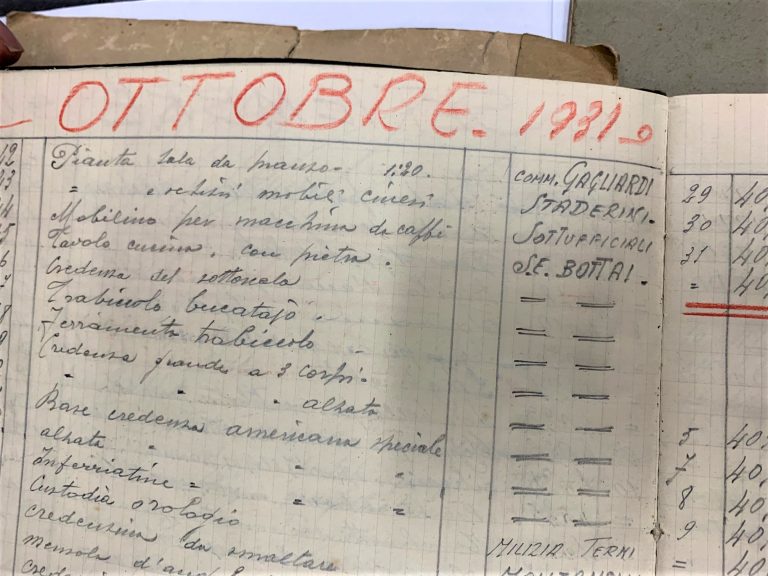 OTTOBRE. 1931
42 Pianta sala da pranzo. 1:20. COMM. GAGLIARDI 29 40
43 " e schizzi mobili cinesi STADERINI. 30 40
44 Mobilino per macchina da caffè SOTTUFFICIALI 31 40
Tavolo cucina. con pietra. S.E. BOTTAI. = 40
Credenza del sottoscala = =
Trabiccolo bucatajo. = =
Ferramenta trabiccolo = =
Credenza grande a 3 corpi. = =
" " " alzata = =
Base credenza americana speciale = = 5 40
alzata " " " = = 7 40
Inferriatine = = = = = 8 40
Custodia orologio = = 9 40
credenzina da smaltare MILIZIA TERMI = 40
mensola d'